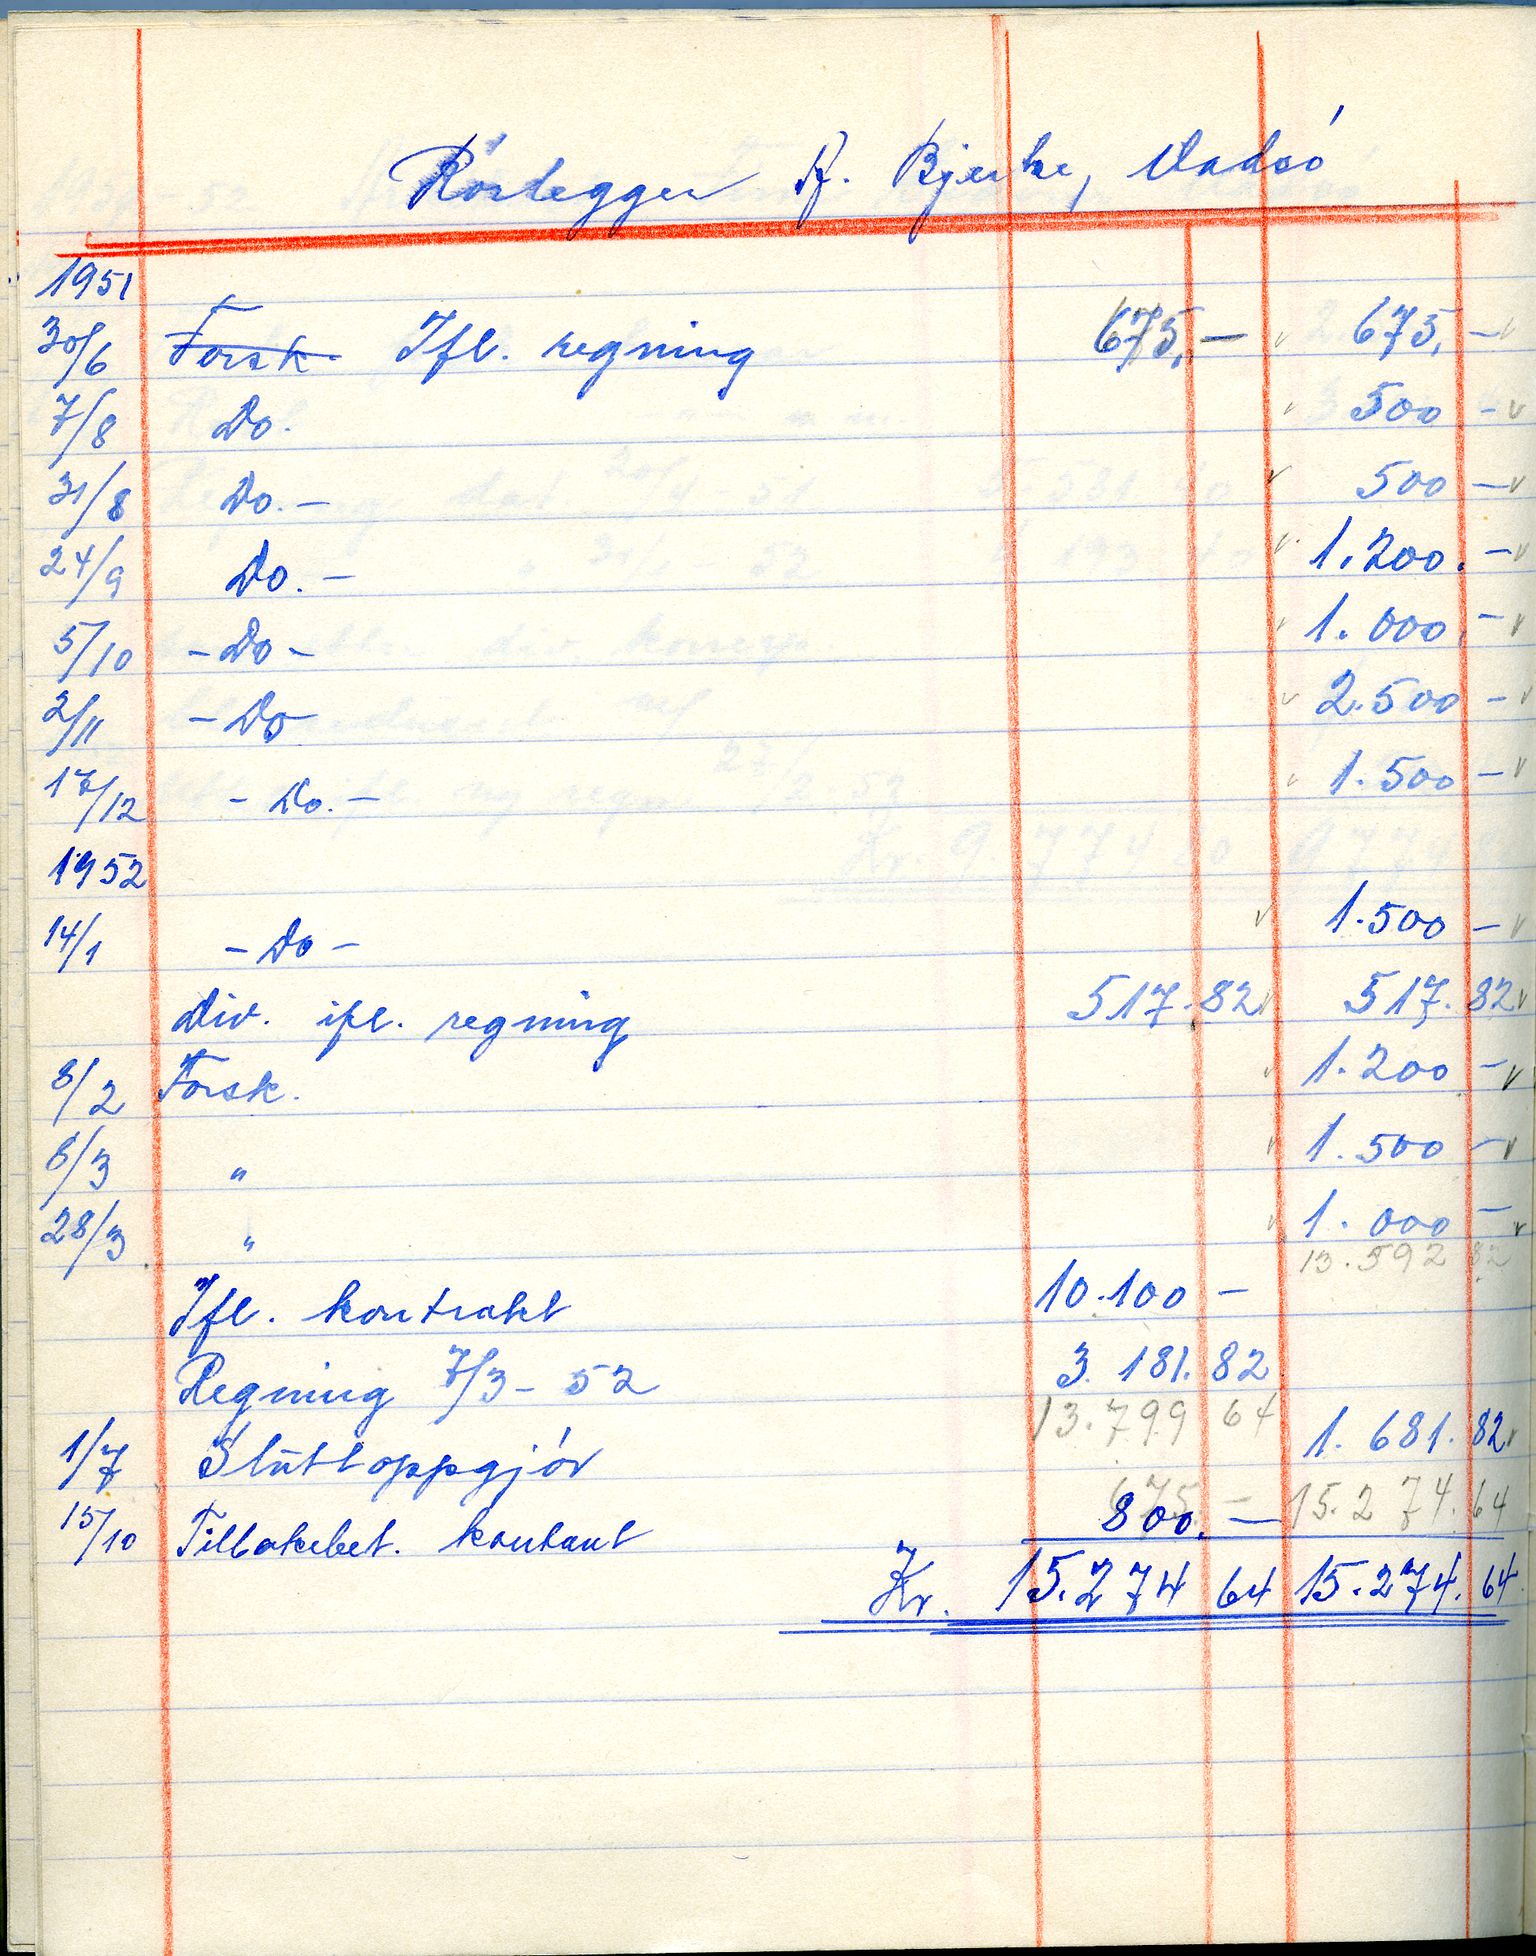 Rörlegger A. Bjerke, Vadsó
1951
30/6 Forsk. Ifl. regning 675,- 675,-
7/8 Do. 500 -
31/8 Do. - 500 -
24/9 Do. - 1.200. -
5/10 - Do - 1.000. -
2/11 - Do 2.500 -
17/12 - Do. - 1.500 -
1952
14/1 - Do - 1.500 -
Div. ifl. regning 517.82 517.82
8/2 Forsk. 1.200 -
8/3 " 1.500 -
28/3 " 1.000 -
13.592 82
Ifl. kontrakt 10.100 -
Regning 7/3 - 52 3.181.82
13.799 64
1/7 Slúttoppgjór 1.681.82
675 - 15.274.64
15/10 Tilbakebet. kontant 800. -
Kr. 15.274 64 15.274.64